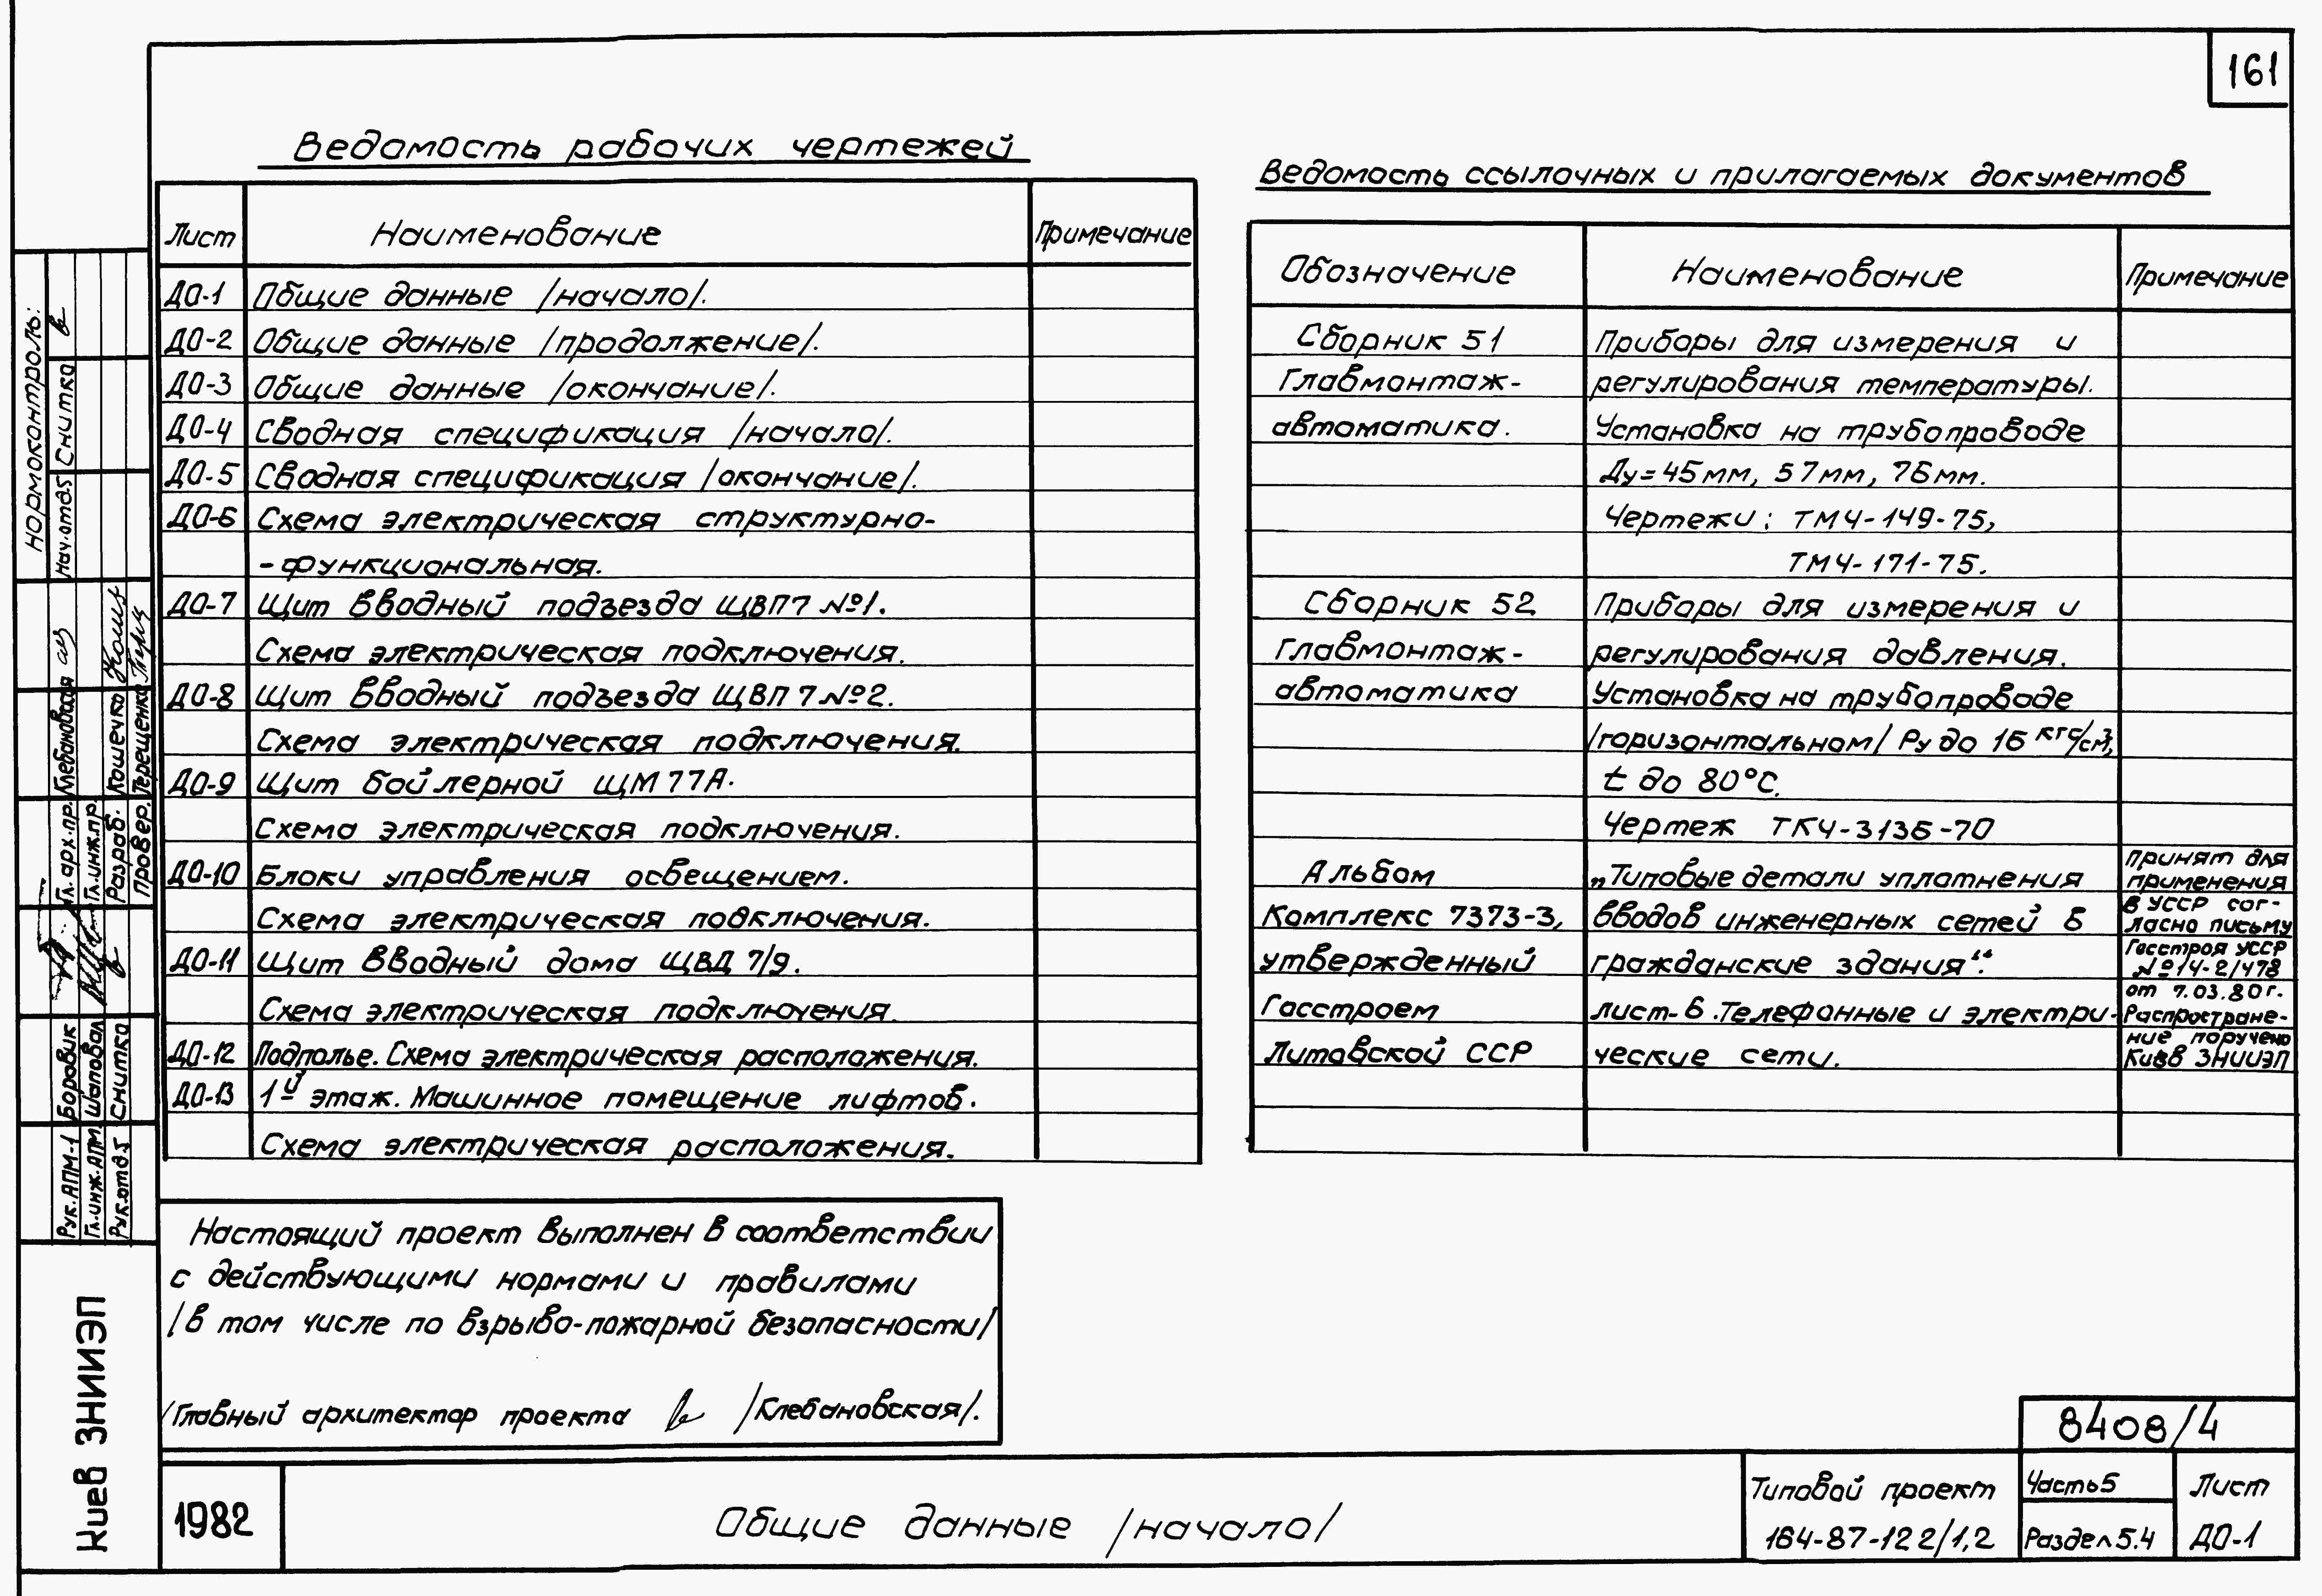 161
Ведомость рабочих чертежей
Лист Наименование Примечание
ДО-1 Общие данные /начало/.
ДО-2 Общие данные /продолжение/.
ДО-3 Общие данные /окончание/.
ДО-4 Сводная спецификация /начало/.
ДО-5 Сводная спецификация /окончание/.
ДО-6 Схема электрическая структурно-
-функциональная.
ДО-7 Щит вводный подъезда ЩВП7 №1.
Схема электрическая подключения.
ДО-8 Щит вводный подъезда ЩВП7 №2.
Схема электрическая подключения.
ДО-9 Щит бойлерной ЩМ77А.
Схема электрическая подключения.
ДО-10 Блоки управления освещением.
Схема электрическая подключения.
ДО-11 Щит вводный дома ЩВД 7/9.
Схема электрическая подключения.
ДО-12 Подполье. Схема электрическая расположения.
ДО-13 1й этаж. Машинное помещение лифтов.
Схема электрическая расположения.
Ведомость ссылочных и прилагаемых документов
Обозначение Наименование Примечание
Сборник 51 Приборы для измерения и
Главмонтаж- регулирования температуры.
автоматика. Установка на трубопроводе
Ду=45мм, 57мм, 76мм.
Чертежи: ТМЧ-149-75,
ТМЧ-171-75.
Сборник 52 Приборы для измерения и
Главмонтаж- регулирования давления.
автоматика Установка на трубопроводе
/горизонтальном/ Ру до 16 кгс/см²,
t до 80°С.
Чертеж ТКЧ-3136-70
Альбом „Типовые детали уплотнения
Комплекс 7373-3, вводов инженерных сетей в
утвержденный гражданские здания“.
Госстроем лист-6. Телефонные и электри-
Литовской ССР ческие сети.
Принят для
применения
в УССР сог-
ласно письму
Госстроя УССР
№14-2/478
от 7.03.80г.
Распростране-
ние поручено
Киев ЗНИИЭП
Настоящий проект выполнен в соответствии
с действующими нормами и правилами
/в том числе по взрыво-пожарной безопасности/
/Главный архитектор проекта /Клебановская/.
нормоконтроль:
Нач.отд5 Снитко
Гл. арх.пр. Клебановская
Гл.инж.пр.
Разраб. Кошечко
Провер. Терещенко
Рук.АПМ-1 Боровик
Гл.инж.АПМ Шаповал
Рук.отд5 Снитко
Киев ЗНИИЭП
1982
Общие данные /начало/
8408/4
Типовой проект
164-87-122/1,2
Часть5
Раздел5.4
Лист
ДО-1